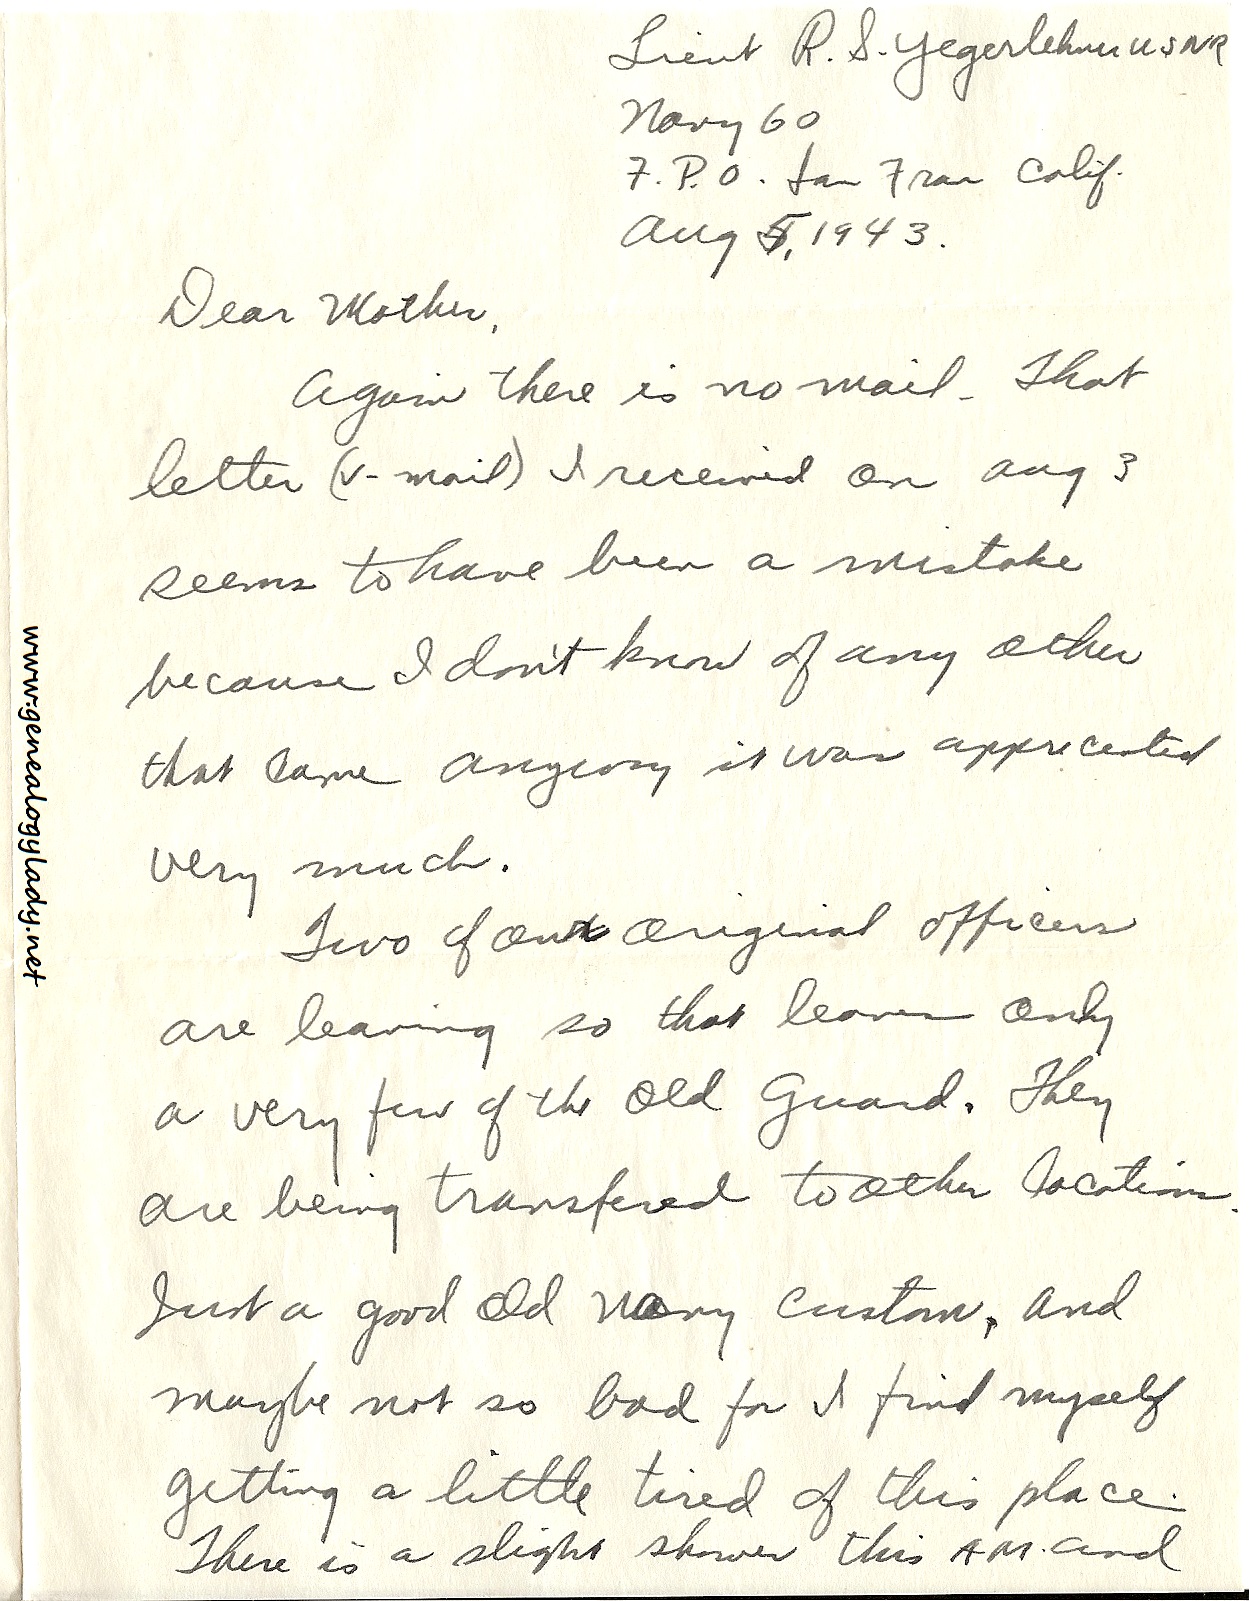 Lieut R. S. Yegerlehner USNR
Navy 60
F.P.O. San Fran Calif.
Aug 5, 1943.
Dear Mother,
Again there is no mail. That
letter (V-mail) I received on Aug 3
seems to have been a mistake
because I don't know of any other
that came anyway it was appreciated
very much.
Two of our original officers
are leaving so that leaves only
a very few of the Old Guard. They
are being transfered to other locations.
Just a good old Navy custom, and
maybe not so bad for I find myself
getting a little tired of this place.
There is a slight shower this AM. and
www.genealogylady.net